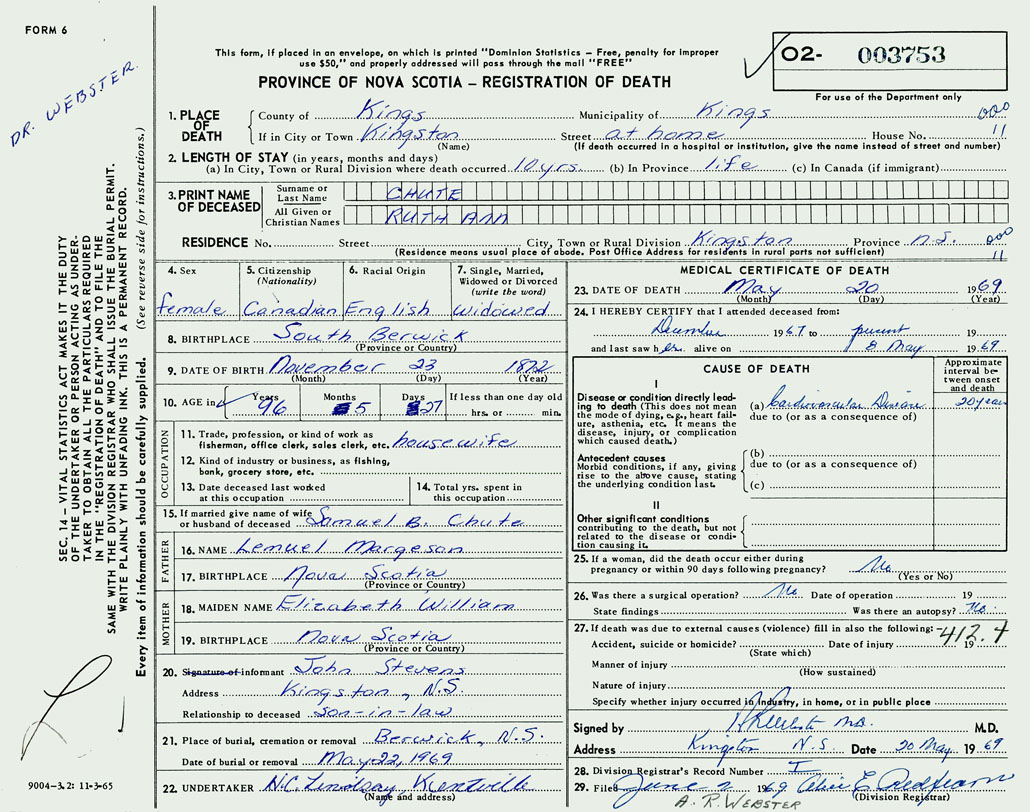 FORM 6
DR. WEBSTER.
This form, if placed in an envelope, on which is printed "Dominion Statistics – Free, penalty for improper
use $50," and properly addressed will pass through the mail "FREE"
PROVINCE OF NOVA SCOTIA – REGISTRATION OF DEATH
O2- 003753
For use of the Department only
1. PLACE OF DEATH
County of Kings Municipality of Kings 000
If in City or Town Kingston Street at home House No. 11
(Name) (If death occurred in a hospital or institution, give the name instead of street and number)
2. LENGTH OF STAY (in years, months and days)
(a) In City, Town or Rural Division where death occurred 10 yrs. (b) In Province life (c) In Canada (if immigrant)
3. PRINT NAME OF DECEASED
Surname or Last Name CHUTE
All Given or Christian Names RUTH ANN
RESIDENCE No. Street City, Town or Rural Division Kingston Province N.S. 000
(Residence means usual place of abode. Post Office Address for residents in rural parts not sufficient) 11
4. Sex female
5. Citizenship (Nationality) Canadian
6. Racial Origin English
7. Single, Married, Widowed or Divorced (write the word) widowed
8. BIRTHPLACE South Berwick
(Province or Country)
9. DATE OF BIRTH November 23 1872
(Month) (Day) (Year)
10. AGE in Years 96 Months 5 Days 27 If less than one day old hrs. or min.
OCCUPATION
11. Trade, profession, or kind of work as fisherman, office clerk, sales clerk, etc. housewife
12. Kind of industry or business, as fishing, bank, grocery store, etc.
13. Date deceased last worked at this occupation
14. Total yrs. spent in this occupation
15. If married give name of wife or husband of deceased Samuel B. Chute
FATHER
16. NAME Lemuel Margeson
17. BIRTHPLACE Nova Scotia
(Province or Country)
MOTHER
18. MAIDEN NAME Elizabeth William
19. BIRTHPLACE Nova Scotia
(Province or Country)
20. Signature of informant John Stevens
Address Kingston, N.S.
Relationship to deceased son-in-law
21. Place of burial, cremation or removal Berwick, N.S.
Date of burial or removal May 22, 1969
22. UNDERTAKER N.C. Lindsay Kentville
(Name and address)
MEDICAL CERTIFICATE OF DEATH
23. DATE OF DEATH May 20 1969
(Month) (Day) (Year)
24. I HEREBY CERTIFY that I attended deceased from:
December 1967 to present 19
and last saw her alive on 8 May 1969
CAUSE OF DEATH
Approximate interval between onset and death
I
Disease or condition directly leading to death (This does not mean the mode of dying, e.g., heart failure, asthenia, etc. It means the disease, injury, or complication which caused death.)
(a) Cardiovascular Disease 20 years
due to (or as a consequence of)
Antecedent causes
Morbid conditions, if any, giving rise to the above cause, stating the underlying condition last.
(b)
due to (or as a consequence of)
(c)
II
Other significant conditions
contributing to the death, but not related to the disease or condition causing it.
25. If a woman, did the death occur either during
pregnancy or within 90 days following pregnancy? No
(Yes or No)
26. Was there a surgical operation? No Date of operation 19
State findings Was there an autopsy? No.
27. If death was due to external causes (violence) fill in also the following: 412.4
Accident, suicide or homicide? Date of injury 19
(State which)
Manner of injury
(How sustained)
Nature of injury
Specify whether injury occurred in industry, in home, or in public place
Signed by M.D.
Address Kingston N.S. Date 20 May 1969
28. Division Registrar's Record Number I
29. Filed June 2 1969
(Division Registrar)
A. R. WEBSTER
SEC. 14 – VITAL STATISTICS ACT MAKES IT THE DUTY
OF THE UNDERTAKER OR PERSON ACTING AS UNDER-
TAKER TO OBTAIN ALL THE PARTICULARS REQUIRED
IN THE "REGISTRATION OF DEATH" AND TO FILE THE
SAME WITH THE DIVISION REGISTRAR WHO SHALL ISSUE THE BURIAL PERMIT.
WRITE PLAINLY WITH UNFADING INK. THIS IS A PERMANENT RECORD.
Every item of information should be carefully supplied. (See reverse side for instructions.)
9004-3.2: 11-3-65